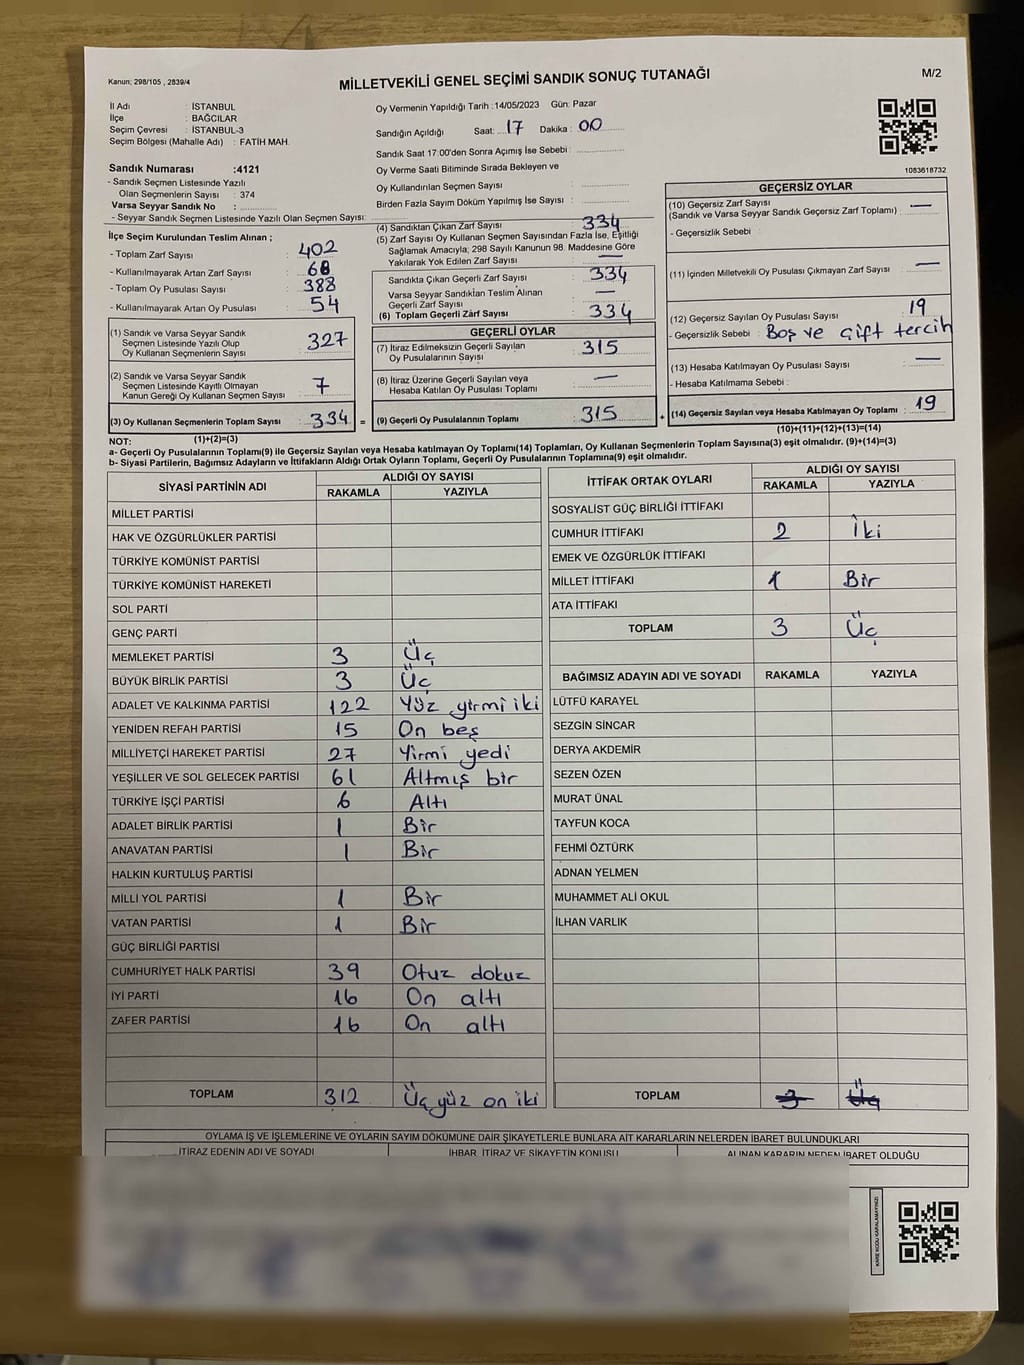 Kanun; 298/105 , 2839/4
MİLLETVEKİLİ GENEL SEÇİMİ SANDIK SONUÇ TUTANAĞI
M/2
İl Adı : İSTANBUL
İlçe : BAĞCILAR
Seçim Çevresi : İSTANBUL-3
Seçim Bölgesi (Mahalle Adı) : FATİH MAH.
Oy Vermenin Yapıldığı Tarih :14/05/2023 Gün: Pazar
Sandığın Açıldığı Saat: 17 Dakika : 00
Sandık Saat 17:00'den Sonra Açımış İse Sebebi :
Oy Verme Saati Bitiminde Sırada Bekleyen ve
Oy Kullandırılan Seçmen Sayısı :
Birden Fazla Sayım Döküm Yapılmış İse Sayısı :
1083618732
Sandık Numarası :4121
- Sandık Seçmen Listesinde Yazılı
Olan Seçmenlerin Sayısı : 374
Varsa Seyyar Sandık No :
- Seyyar Sandık Seçmen Listesinde Yazılı Olan Seçmen Sayısı:
İlçe Seçim Kurulundan Teslim Alınan ;
- Toplam Zarf Sayısı : 402
- Kullanılmayarak Artan Zarf Sayısı : 68
- Toplam Oy Pusulası Sayısı : 388
- Kullanılmayarak Artan Oy Pusulası : 54
(1) Sandık ve Varsa Seyyar Sandık
Seçmen Listesinde Yazılı Olup
Oy Kullanan Seçmenlerin Sayısı : 327
(2) Sandık ve Varsa Seyyar Sandık
Seçmen Listesinde Kayıtlı Olmayan
Kanun Gereği Oy Kullanan Seçmen Sayısı : 7
(3) Oy Kullanan Seçmenlerin Toplam Sayısı : 334 =
(1)+(2)=(3)
(4) Sandıktan Çıkan Zarf Sayısı : 334
(5) Zarf Sayısı Oy Kullanan Seçmen Sayısından Fazla İse, Eşitliği
Sağlamak Amacıyla; 298 Sayılı Kanunun 98. Maddesine Göre
Yakılarak Yok Edilen Zarf Sayısı : —
Sandıkta Çıkan Geçerli Zarf Sayısı : 334
Varsa Seyyar Sandıktan Teslim Alınan
Geçerli Zarf Sayısı : —
(6) Toplam Geçerli Zarf Sayısı : 334
GEÇERLİ OYLAR
(7) İtiraz Edilmeksizin Geçerli Sayılan
Oy Pusulalarının Sayısı : 315
(8) İtiraz Üzerine Geçerli Sayılan veya
Hesaba Katılan Oy Pusulası Toplamı : —
(9) Geçerli Oy Pusulalarının Toplamı : 315 +
GEÇERSİZ OYLAR
(10) Geçersiz Zarf Sayısı : —
(Sandık ve Varsa Seyyar Sandık Geçersiz Zarf Toplamı)
- Geçersizlik Sebebi :
(11) İçinden Milletvekili Oy Pusulası Çıkmayan Zarf Sayısı : —
(12) Geçersiz Sayılan Oy Pusulası Sayısı : 19
- Geçersizlik Sebebi : Boş ve çift tercih
(13) Hesaba Katılmayan Oy Pusulası Sayısı : —
- Hesaba Katılmama Sebebi :
(14) Geçersiz Sayılan veya Hesaba Katılmayan Oy Toplamı : 19
(10)+(11)+(12)+(13)=(14)
NOT:
a- Geçerli Oy Pusulalarının Toplamı(9) ile Geçersiz Sayılan veya Hesaba katılmayan Oy Toplamı(14) Toplamları, Oy Kullanan Seçmenlerin Toplam Sayısına(3) eşit olmalıdır. (9)+(14)=(3)
b- Siyasi Partilerin, Bağımsız Adayların ve İttifakların Aldığı Ortak Oyların Toplamı, Geçerli Oy Pusulalarının Toplamına(9) eşit olmalıdır.
SİYASİ PARTİNİN ADI ALDIĞI OY SAYISI
RAKAMLA YAZIYLA
MİLLET PARTİSİ
HAK VE ÖZGÜRLÜKLER PARTİSİ
TÜRKİYE KOMÜNİST PARTİSİ
TÜRKİYE KOMÜNİST HAREKETİ
SOL PARTİ
GENÇ PARTİ
MEMLEKET PARTİSİ 3 Üç
BÜYÜK BİRLİK PARTİSİ 3 Üç
ADALET VE KALKINMA PARTİSİ 122 Yüz yirmi iki
YENİDEN REFAH PARTİSİ 15 On beş
MİLLİYETÇİ HAREKET PARTİSİ 27 Yirmi yedi
YEŞİLLER VE SOL GELECEK PARTİSİ 61 Altmış bir
TÜRKİYE İŞÇİ PARTİSİ 6 Altı
ADALET BİRLİK PARTİSİ 1 Bir
ANAVATAN PARTİSİ 1 Bir
HALKIN KURTULUŞ PARTİSİ
MİLLİ YOL PARTİSİ 1 Bir
VATAN PARTİSİ 1 Bir
GÜÇ BİRLİĞİ PARTİSİ
CUMHURİYET HALK PARTİSİ 39 Otuz dokuz
İYİ PARTİ 16 On altı
ZAFER PARTİSİ 16 On altı
TOPLAM 312 Üç yüz on iki
İTTİFAK ORTAK OYLARI ALDIĞI OY SAYISI
RAKAMLA YAZIYLA
SOSYALİST GÜÇ BİRLİĞİ İTTİFAKI
CUMHUR İTTİFAKI 2 İki
EMEK VE ÖZGÜRLÜK İTTİFAKI
MİLLET İTTİFAKI 1 Bir
ATA İTTİFAKI
TOPLAM 3 Üç
BAĞIMSIZ ADAYIN ADI VE SOYADI RAKAMLA YAZIYLA
LÜTFÜ KARAYEL
SEZGİN SİNCAR
DERYA AKDEMİR
SEZEN ÖZEN
MURAT ÜNAL
TAYFUN KOCA
FEHMİ ÖZTÜRK
ADNAN YELMEN
MUHAMMET ALİ OKUL
İLHAN VARLIK
TOPLAM 3 Üç
OYLAMA İŞ VE İŞLEMLERİNE VE OYLARIN SAYIM DÖKÜMÜNE DAİR ŞİKAYETLERLE BUNLARA AİT KARARLARIN NELERDEN İBARET BULUNDUKLARI
İTİRAZ EDENİN ADI VE SOYADI İHBAR, İTİRAZ VE ŞİKAYETİN KONUSU ALINAN KARARIN NEDEN İBARET OLDUĞU
KARE KODU KARALAMAYINIZ!